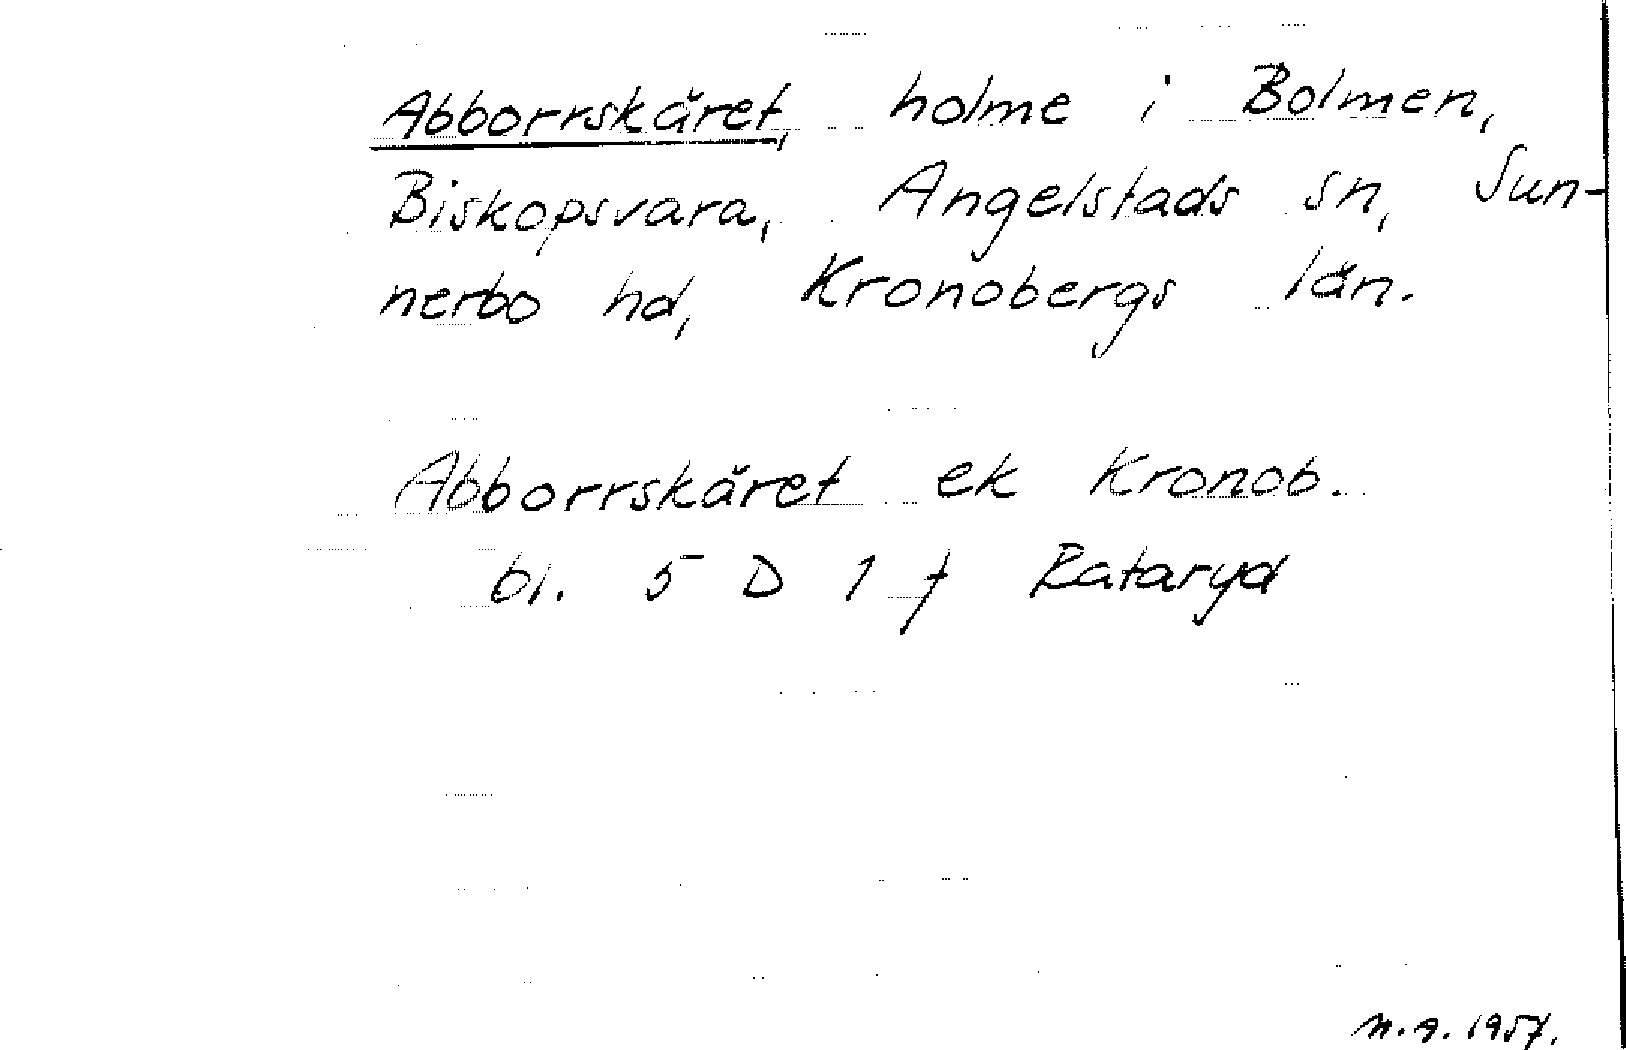 Abborrskäret, holme i Bolmen,
Biskopsvara, Angelstads sn, Sun-
nerbo hd, Kronobergs län.
Abborrskäret ek Kronob.
bl. 5 D 1 f Rataryd
M.A. 1957.